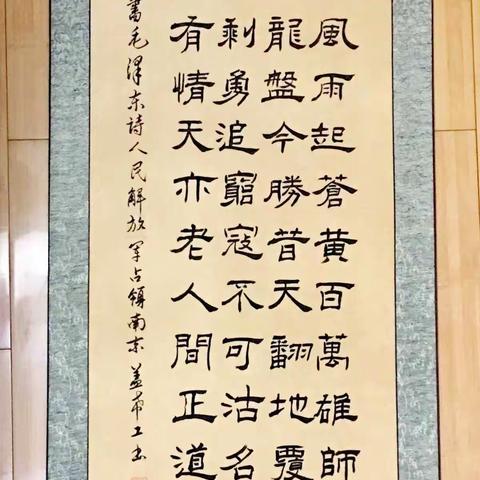 風雨起蒼黃百萬雄師
龍盤今勝昔天翻地覆
剩勇追窮寇不可沽名
有情天亦老人間正道
書毛澤东诗人民解放军占领南京